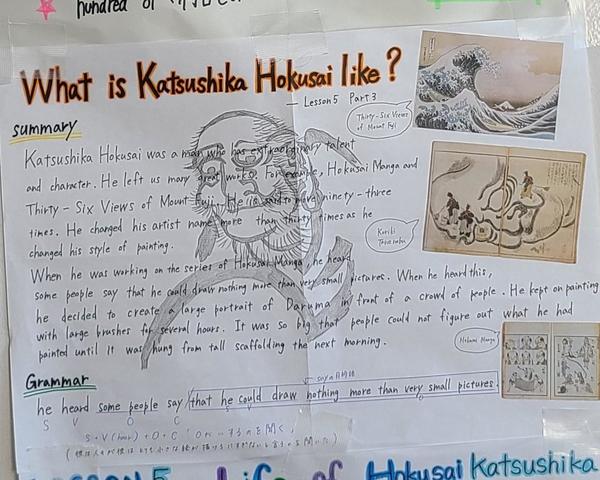 hundred of
What is Katsushika Hokusai like?
— Lesson 5 Part 3
Thirty-Six Views
of Mount Fuji
summary
Katsushika Hokusai was a man who has extraordinary talent
and character. He left us many great works. For example, Hokusai Manga and
Thirty-Six Views of Mount Fuji. He is said to move ninety-three
times. He changed his artist name more than thirty times as he
changed his style of painting.
When he was working on the series of Hokusai Manga, he heard
some people say that he could draw nothing more than very small pictures. When he heard this,
he decided to create a large portrait of Daruma in front of a crowd of people. He kept on painting
with large brushes for several hours. It was so big that people could not figure out what he had
painted until it was hung from tall scaffolding the next morning.
Hokusai Manga
Grammar
he heard some people say that he could draw nothing more than very small pictures.
S V O C
S+V(hear)+O+C
LESSON 5 Life of Hokusai Katsushika